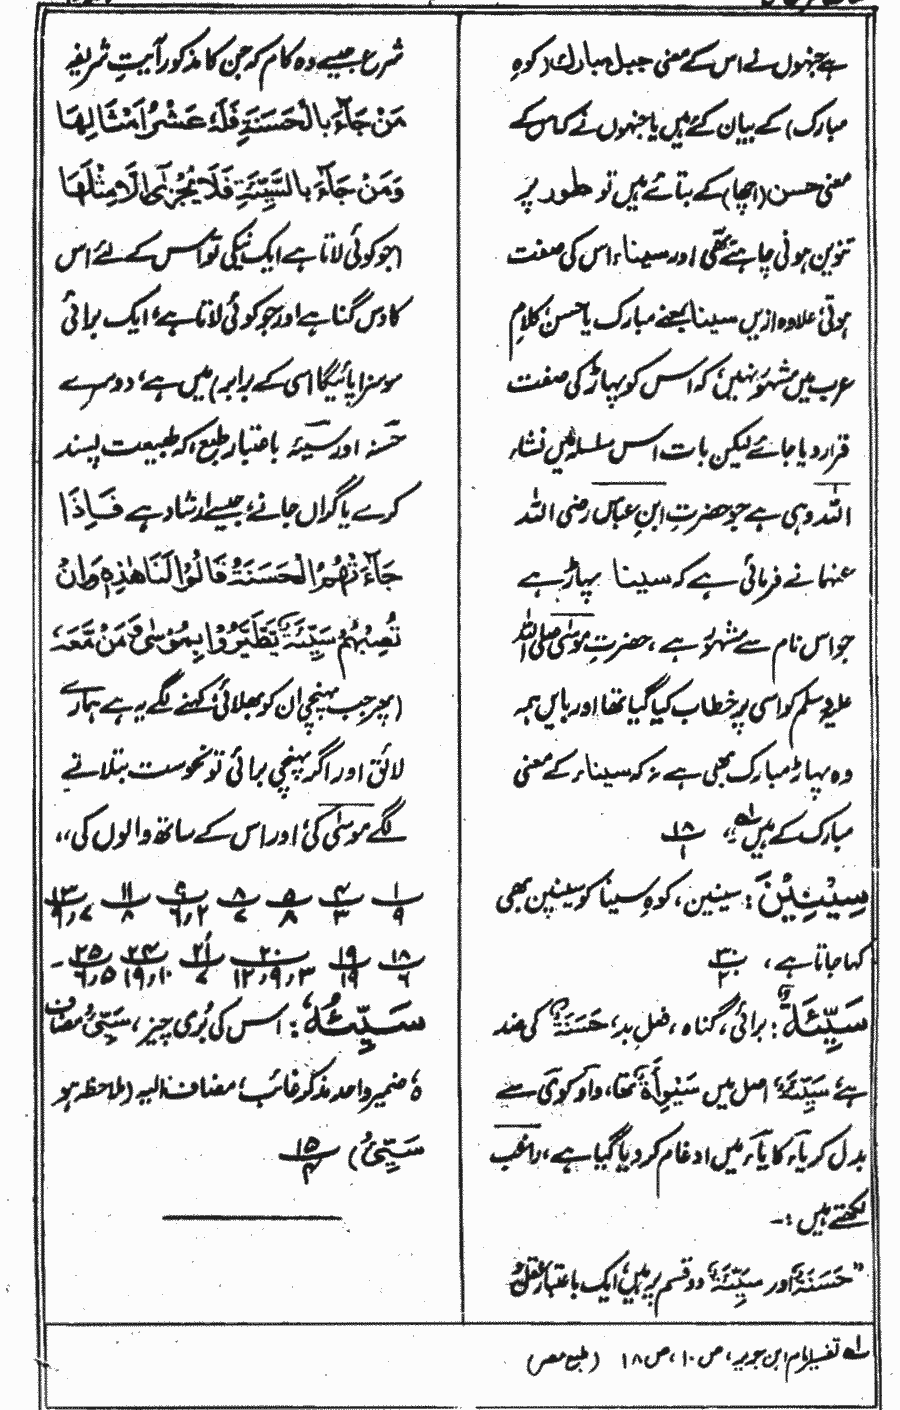 ہے جنہوں نے اس کے معنی جبل مبارک (کوہِ
مبارک) کے بیان کئے ہیں یا جنہوں نے کہ اس کے
معنی حسن (اچھا) کے بتائے ہیں تو طور پر
تنوین ہونی چاہئے تھی اور سیناء اس کی صفت
ہوتی، علاوہ ازیں سینا بمعنے مبارک یا حسن کلامِ
عرب میں مشہور نہیں، کہ اس کو پہاڑ کی صفت
قرار دیا جائے لیکن بات اس سلسلہ میں نشاء
اللہ وہی ہے جو حضرتِ ابن عباس رضی اللہ
عنہما نے فرمائی ہے کہ سینا پہاڑ ہے
جو اس نام سے مشہور ہے، حضرتِ موسٰی صلی اللہ
علیہ وسلم کو اسی پر خطاب کیا گیا تھا اور بایں ہمہ
وہ پہاڑ مبارک بھی ہے، نہ کہ سیناء کے معنی
مبارک کے ہیں لہ، ۱۸/۱
سِیْنِیْنَ: سینین، کوہِ سینا کو سینین بھی
کہا جاتا ہے، ۳۰/۲۰
سَیِّئَةٌ: برائی، گناہ، فعلِ بد، حَسَنَةٌ کی ضد
ہے، سَیِّئَةٌ اصل میں سَیْوِأَةٌ تھا، واو کو ی سے
بدل کر یاء کا یاء میں ادغام کر دیا گیا ہے، راغب
لکھتے ہیں:۔
"حَسَنَةٌ اور سَیِّئَةٌ دو قسم پر ہیں، ایک باعتبار عقل و
شرع جیسے وہ کام کہ جن کا مذکور آیتِ شریفہ
مَنْ جَآءَ بِالْحَسَنَةِ فَلَهٗ عَشْرُ اَمْثَالِهَا
وَمَنْ جَآءَ بِالسَّيِّئَةِ فَلَا يُجْزٰى اِلَّا مِثْلَهَا
(جو کوئی لاتا ہے ایک نیکی تو اس کے لئے اس
کا دس گنا ہے اور جو کوئی لاتا ہے، ایک برائی
سو سزا پائیگا اسی کے برابر) میں ہے، دوسرے
حسنہ اور سیئہ باعتبار طبع، کہ طبیعت پسند
کرے یا گراں جانے، جیسے ارشاد ہے فَاِذَا
جَآءَتْهُمُ الْحَسَنَةُ قَالُوْا لَنَا هٰذِهٖ وَاِنْ
تُصِبْهُمْ سَيِّئَةٌ يَّطَّيَّرُوْا بِمُوْسٰى وَمَنْ مَّعَهٗ
(پھر جب پہنچی ان کو بھلائی، کہنے لگے یہ ہے ہمارے
لائق اور اگر پہنچی برائی تو نحوست بتلاتے
لگے موسیٰ کی، اور اس کے ساتھ والوں کی،،
۱/۹ ۴/۳ ۵/۸ ۸/۷ ۹/۶،۲ ۱۱/۸ ۱۳/۹،۷
۱۸/۶ ۱۹/۱۹ ۲۰/۱۲،۹،۳ ۲۱/۷ ۲۴/۱۹،۱۰ ۲۵/۶،۵ ۔
سَیِّئُہٗ: اس کی بُری چیز، سَیِّیُٔ مضاف
ہٗ ضمیر واحد مذکر غائب، مضاف الیہ (ملاحظہ ہو
سَیِّیُٔ) ۱۵/۴
لہ تفسیر امام ابن جریر، ص ۱۰، ص ۱۸ (طبع مصر)